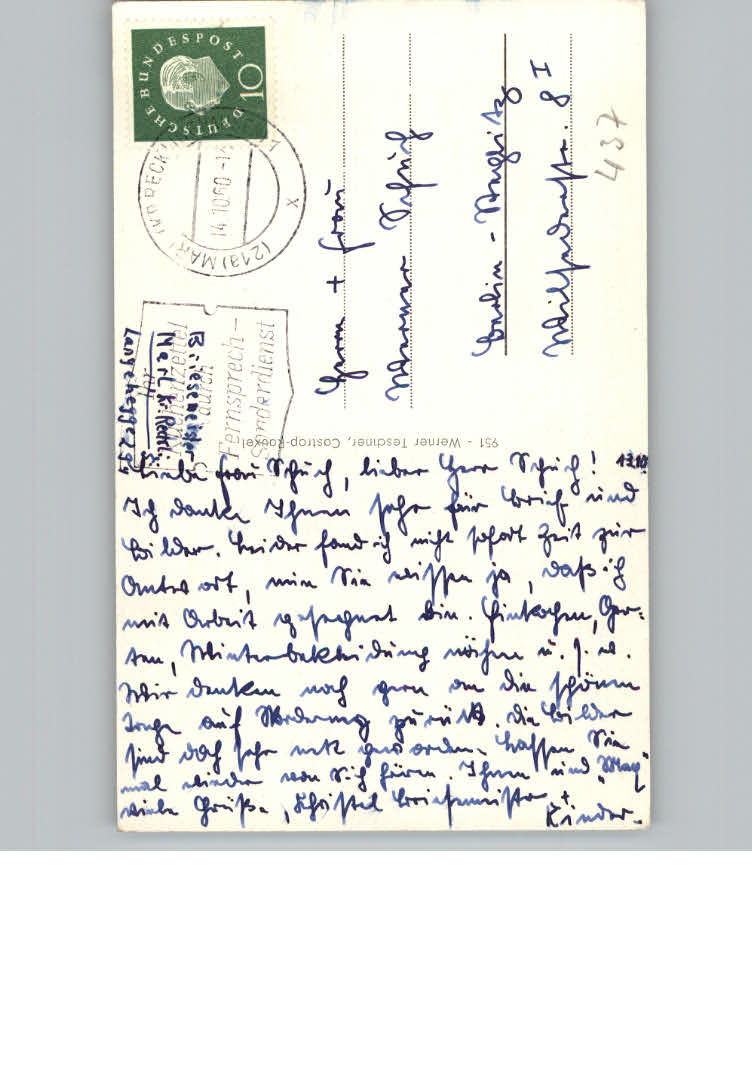 DEUTSCHE BUNDESPOST
10
(21a) MARL
14.10.60
x
Fernsprech-
Sonderdienst
durch
Küchenzettel
Ihr
Briesemeister
Marl Kr. Recklh.
Langehegge 29
Herrn + Frau
Werner Schuch
Berlin - Steglitz
I
437
951 - Werner Teschner, Castrop-Rauxel
13.10.
Liebe Frau Schuch, lieber Herr Schuch!
Ich danke Ihnen sehr für Brief und
Bilder. Leider fand ich nicht sofort Zeit zur
Antwort, nun Sie wissen ja, daß ich
mit Arbeit gesegnet bin. Einkochen, Gar-
ten, Winterbekleidung nähen u.s.w.
Wir denken noch gern an die schönen
Tage auf Norderney zurück. Die Bilder
sind doch sehr nett geworden. Lassen Sie
mal wieder von sich hören. Ihnen und
viele Grüße, Christel Briesemeister +
Kinder.